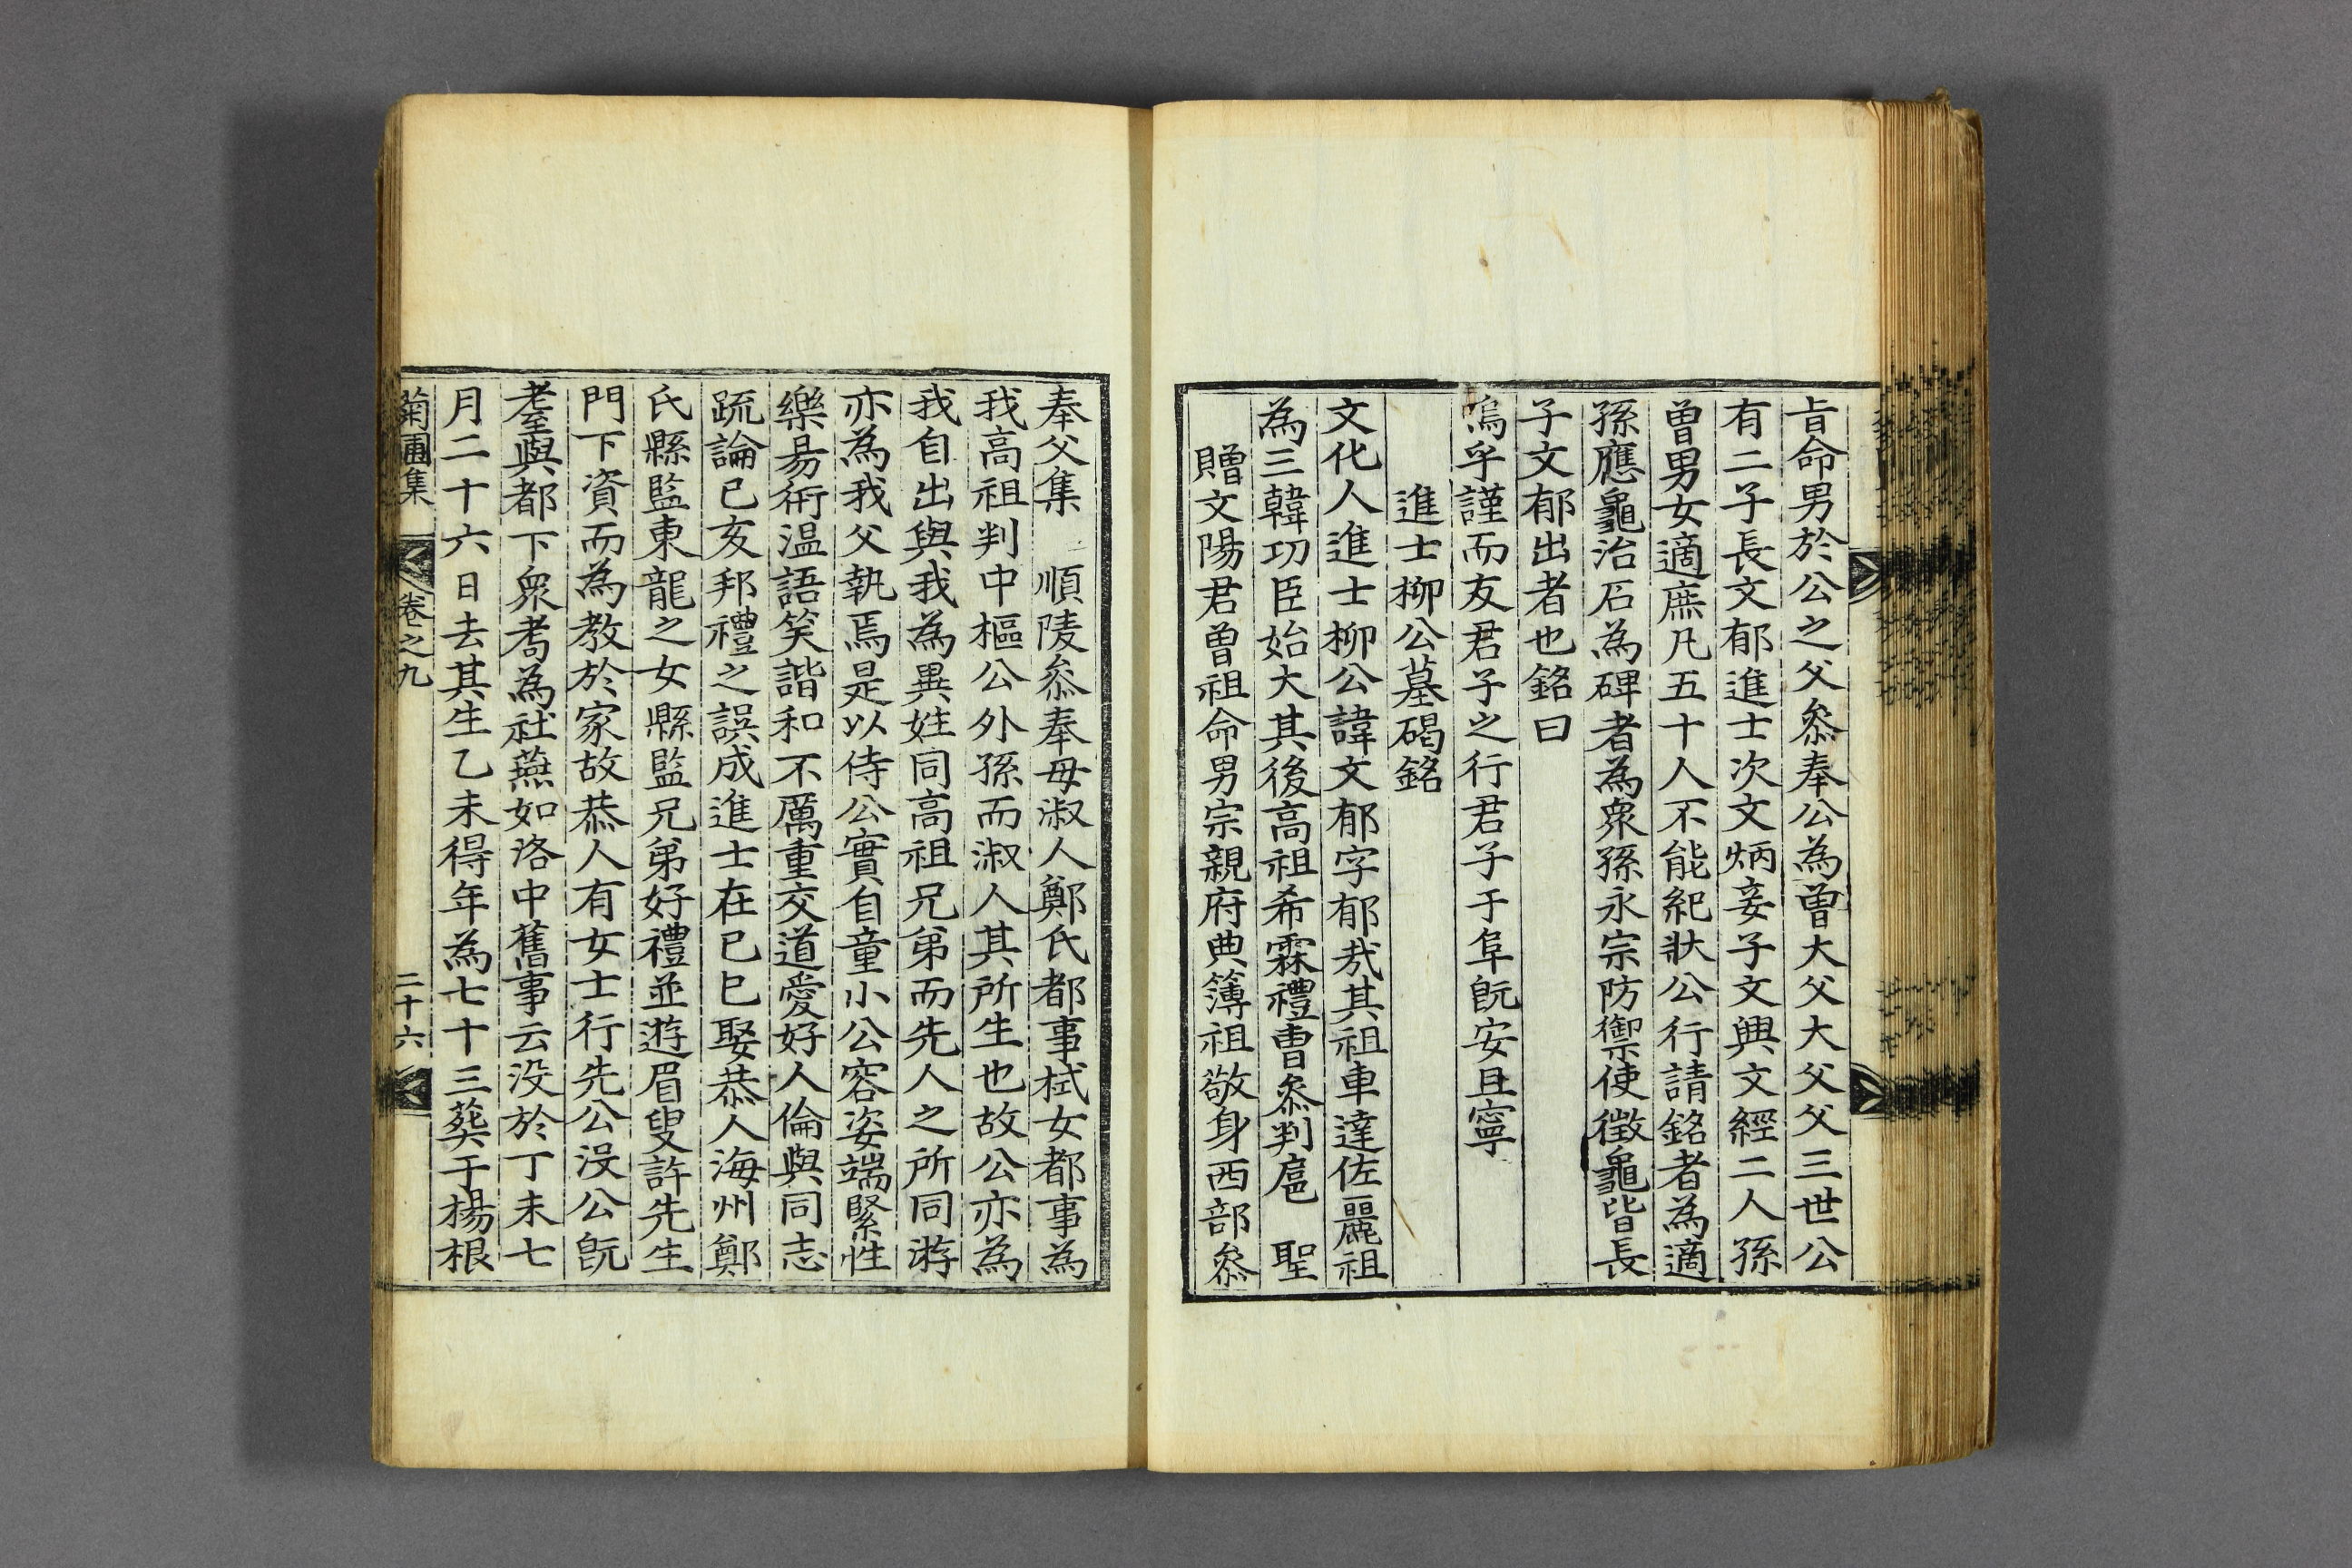 旨命男於公之父叅奉公為曽大父大父父三世公
有二子長文郁進士次文炳妾子文興文經二人孫
曽男女適庶凡五十人不能紀狀公行請銘者為適
孫應龜治石為碑者為衆孫永宗防禦使徴龜皆長
子文郁出者也銘曰
嗚乎謹而友君子之行君子于阜旣安且寧
進士柳公墓碣銘
文化人進士柳公諱文郁字郁哉其祖車達佐麗祖
為三韓功臣始大其後高祖希霖禮曹叅判扈 聖
贈文陽君曽祖命男宗親府典簿祖敬身西部叅
奉父集 順陵叅奉母淑人鄭氏都事栻女都事為
我高祖判中樞公外孫而淑人其所生也故公亦為
我自出與我為異姓同高祖兄弟而先人之所同游
亦為我父執焉是以侍公實自童小公容姿端緊性
樂易術温語笑諧和不厲重交道愛好人倫與同志
疏論己亥邦禮之誤成進士在己巳娶恭人海州鄭
氏縣監東龍之女縣監兄弟好禮並遊眉叟許先生
門下資而為教於家故恭人有女士行先公沒公旣
耋與都下衆耇為社燕如洛中舊事云没於丁未七
月二十六日去其生乙未得年為七十三葬于楊根
菊圃集 卷之九 二十六